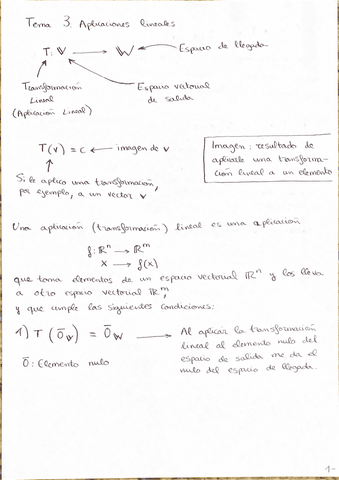 Tema 3: Aplicaciones lineales
T: V → W ← Espacio de llegada
Transformación
Lineal
(Aplicación Lineal)
Espacio vectorial
de salida
T(v) = c ← imagen de v
Si le aplico una transformación,
por ejemplo, a un vector v
Imagen: resultado de
aplicarle una transforma-
ción lineal a un elemento
Una aplicación (transformación) lineal es una aplicación
f: ℝⁿ → ℝᵐ
x → f(x)
que toma elementos de un espacio vectorial ℝⁿ y los lleva
a otro espacio vectorial ℝᵐ,
y que cumple las siguientes condiciones:
1) T(0̄_V) = 0̄_W → Al aplicar la transformación
lineal al elemento nulo del
espacio de salida me da el
nulo del espacio de llegada.
0̄: Elemento nulo
1-